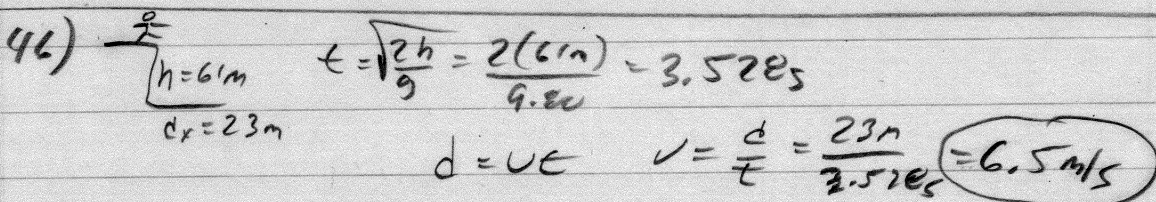 46)
h=61m
dx=23m
t=√2h/g = 2(61m)/9.80 = 3.528s
d = vt v = d/t = 23m/3.528s = 6.5 m/s